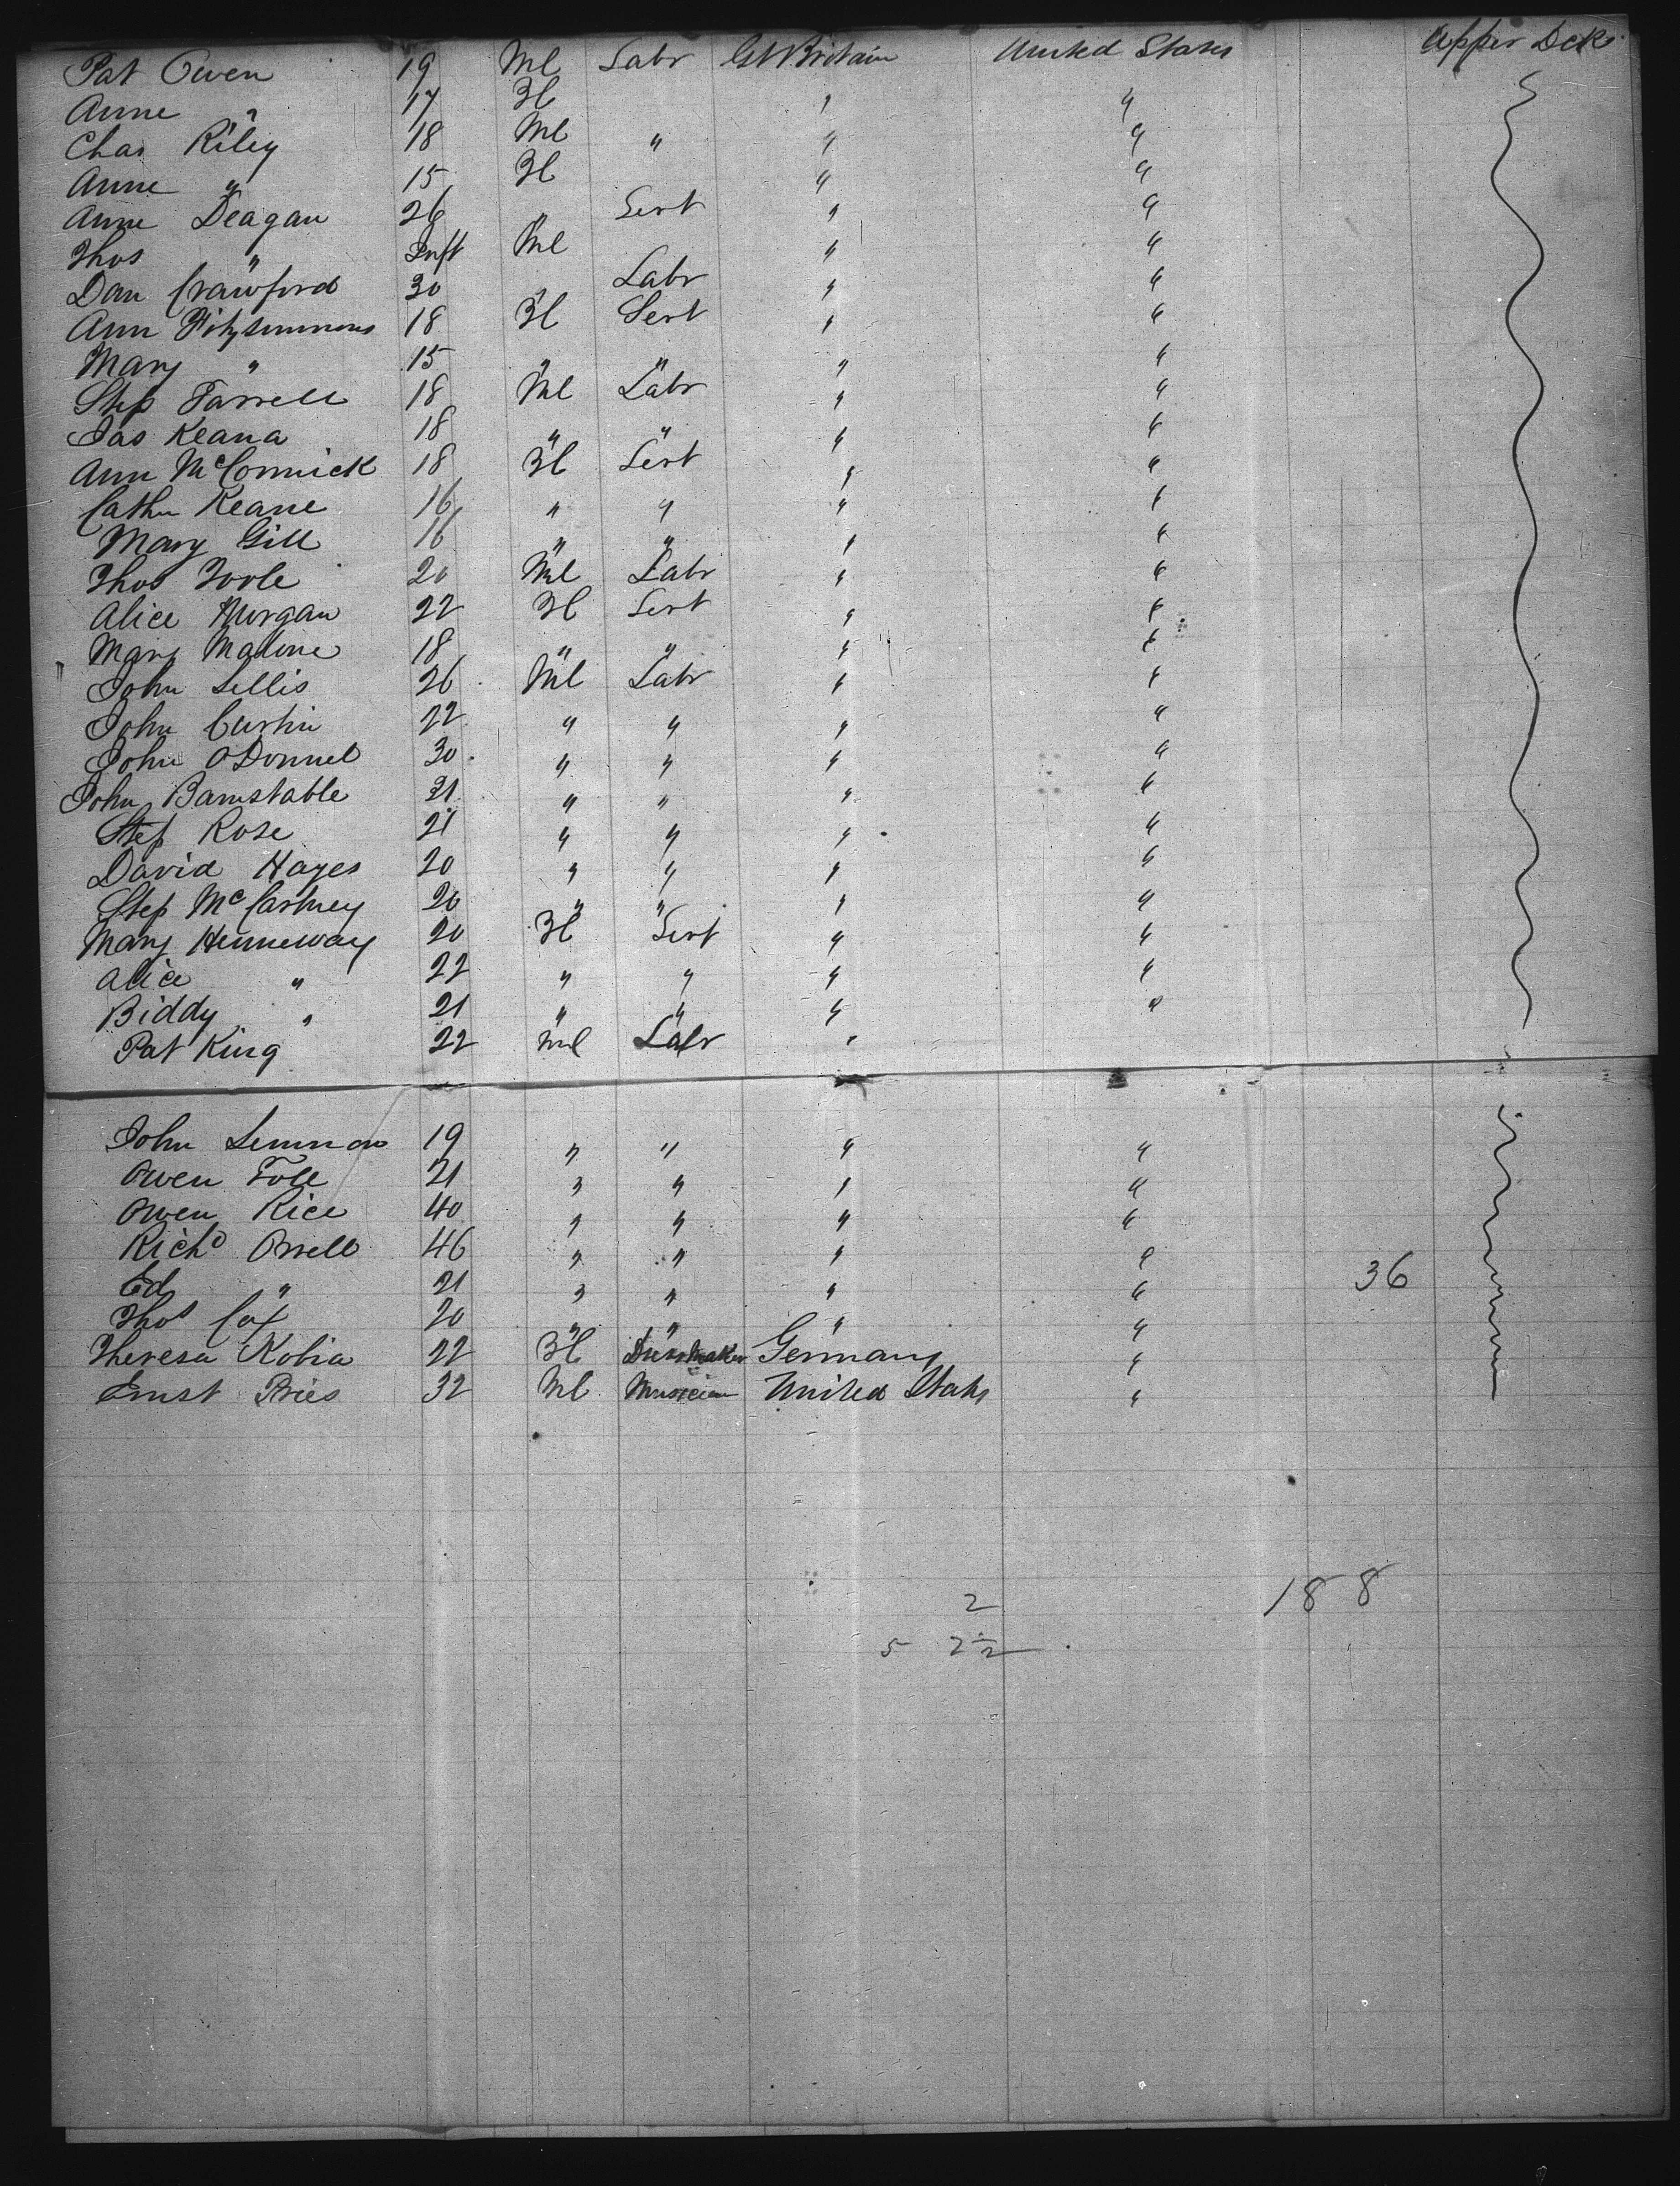 Pat Owen 19 Ml Labr Gt Britain United States Upper Deck
Anne " 17 Fl " "
Chas Riley 18 Ml " " "
Anne " 15 Fl " "
Anne Deagan 26 " Sert " "
Thos " Inft Ml " "
Dan Crawford 30 " Labr " "
Ann Fitzsimmons 18 Fl Sert " "
Mary " 15 " " " "
Step Farrell 18 Ml Labr " "
Jas Keana 18 " " " "
Ann McCormick 18 Fl Sert " "
Cathe Keane 16 " " " "
Mary Gill 16 " " " "
Thos Toole 20 Ml Labr " "
Alice Morgan 22 Fl Sert " "
Mary Malone 18 " " " "
John Lellis 26 Ml Labr " "
John Curtin 22 " " " "
John O'Donnel 30 " " " "
John Barnstable 31 " " " "
Step Rose 21 " " " "
David Hayes 20 " " " "
Step McCartney 20 " " " "
Mary Henneway 20 Fl Sert " "
Alice " 22 " " " "
Biddy " 21 " " " "
Pat King 22 Ml Labr "
John Lennon 19 " " " "
Owen Tole 21 " " " "
Owen Rice 40 " " " "
Richd Orrell 46 " " " "
Ed " 21 " " " " 36
Thos Cox 20 " " " "
Theresa Kobia 22 Fl Dressmaker Germany "
Ernst Pries 32 Ml Musician United States "
2 188
5 22